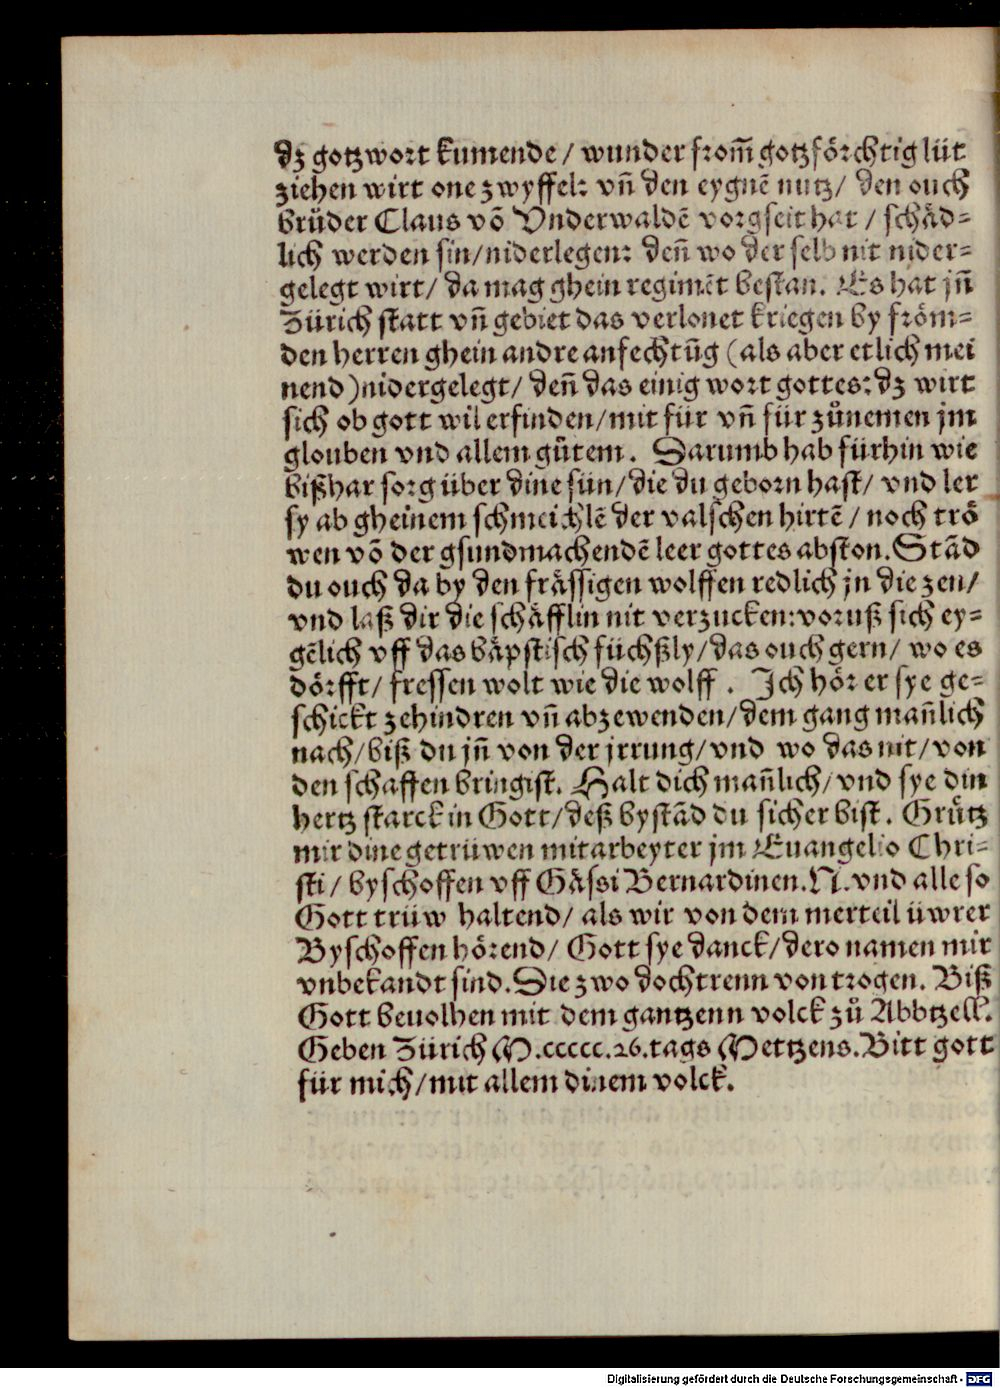 dz gotzwort kumende / wunder from̃ gotzförchtig lüt
ziehen wirt one zwyffel: vñ den eygnẽ nutz / den ouch
brůder Claus võ Vnderwaldẽ vorgseit hat / schäd-
lich werden sin / niderlegen: deñ wo der selb nit nider-
gelegt wirt / da mag ghein regimẽt bestan. Es hat jñ
Zürich statt vñ gebiet das verlonet kriegen by fröm-
den herren ghein andre anfechtũg (als aber etlich mei
nend) nidergelegt / deñ das einig wort gottes: dz wirt
sich ob gott wil erfinden / mit für vñ für zůnemen jm
glouben vnd allem gůtem. Darumb hab fürhin wie
bißhar sorg über dine sün / die du geborn hast / vnd ler
sy ab gheinem schmeichlẽ der valschen hirtẽ / noch trö
wen võ der gsundmachendẽ leer gottes abston. Stãd
du ouch da by den frässigen wolffen redlich jn die zen /
vnd laß dir die schäfflin nit verzucken: voruß sich ey-
gẽlich vff das bäpstisch füchßly / das ouch gern / wo es
dörfft / fressen wolt wie die wolff. Ich hör er sye ge-
schickt zehindren vñ abzewenden / dem gang mañlich
nach / biß du jñ von der jrrung / vnd wo das nit / von
den schaffen bringist. Halt dich mañlich / vnd sye din
hertz starck in Gott / deß bystãd du sicher bist. Grůtz
mir dine getrüwen mitarbeyter jm Euangelio Chri-
sti / byschoffen vff Gässi Bernardinen. N. vnd alle so
Gott trüw haltend / als wir von dem merteil üwrer
Byschoffen hörend / Gott sye danck / dero namen mir
vnbekandt sind. Die zwo dochtrenn von trogen. Biß
Gott beuolhen mit dem gantzenn volck zů Abbtzell.
Geben Zürich M.ccccc.26. tags Mettzens. Bitt gott
für mich / mit allem dinem volck.
Digitalisierung gefördert durch die Deutsche Forschungsgemeinschaft - DFG